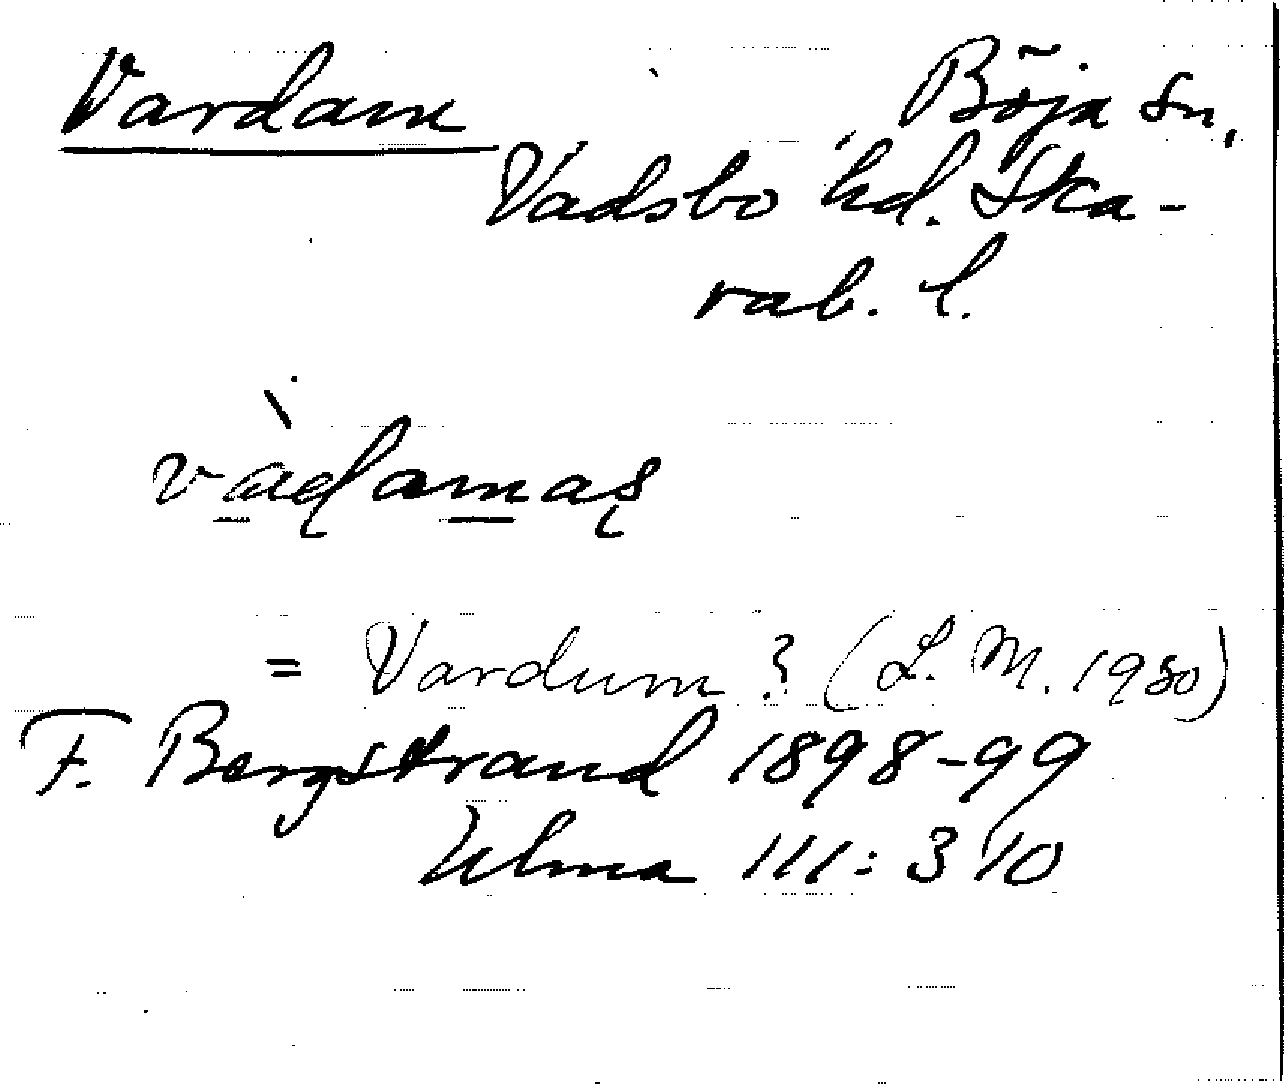 Vardam Böja sn,
Vadsbo hd. Ska-
rab. l.
vàḍamaş
= Vardum? (L. M. 1980)
F. Bergstrand 1898-99
Ulma 111:310